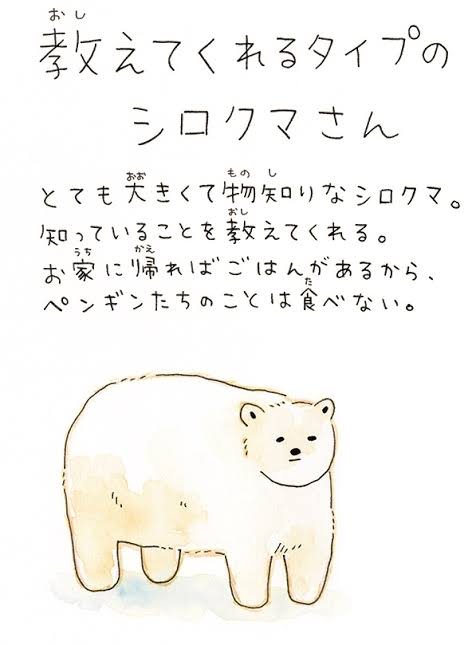 教えてくれるタイプの
シロクマさん
とても大きくて物知りなシロクマ。
知っていることを教えてくれる。
お家に帰ればごはんがあるから、
ペンギンたちのことは食べない。